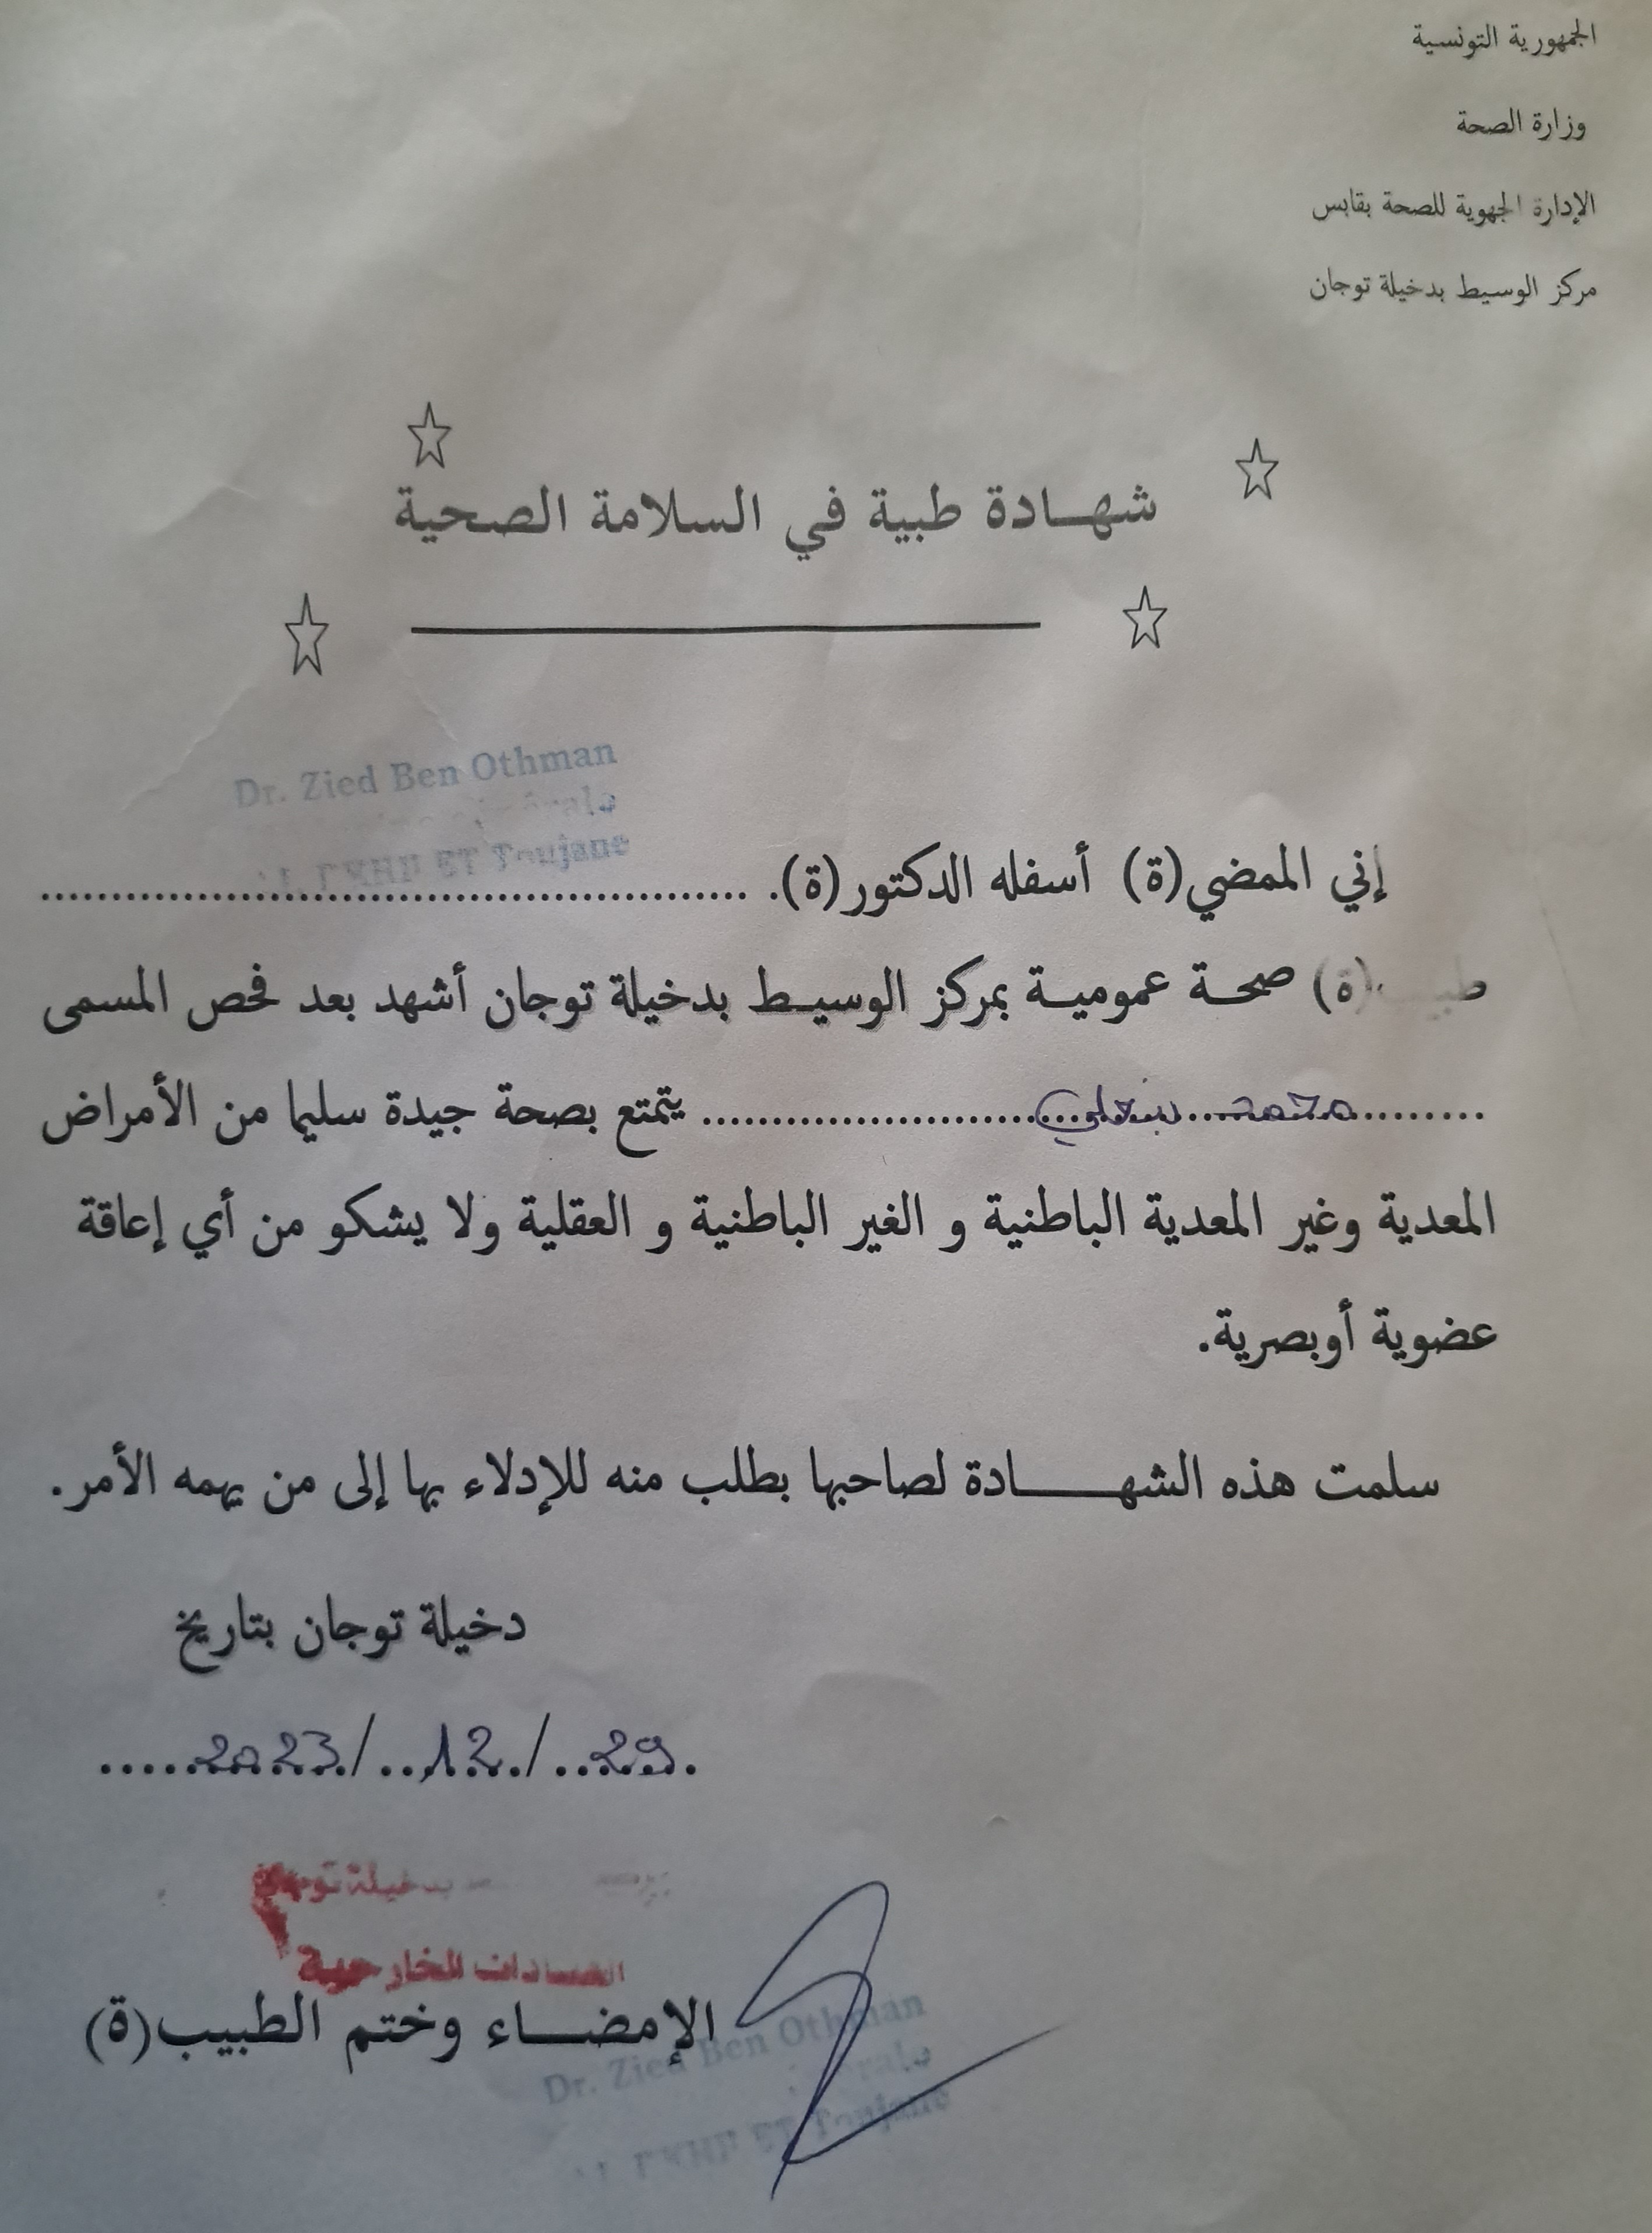 الجمهورية التونسية
وزارة الصحة
الإدارة الجهوية للصحة بقابس
مركز الوسيط بدخيلة توجان
شهادة طبية في السلامة الصحية
Dr. Zied Ben Othman
Toujane
إني الممضي(ة) أسفله الدكتور(ة). ..................................................
(ة) صحة عمومية بمركز الوسيط بدخيلة توجان أشهد بعد فحص المسمى
يتمتع بصحة جيدة سليما من الأمراض
المعدية وغير المعدية الباطنية و الغير الباطنية و العقلية ولا يشكو من أي إعاقة
عضوية أوبصرية.
سلمت هذه الشهادة لصاحبها بطلب منه للإدلاء بها إلى من يهمه الأمر.
دخيلة توجان بتاريخ
2023/12/29
بدخيلة توجان
الخارجية
الإمضاء وختم الطبيب(ة)
Dr. Zied Ben Othman
Toujane